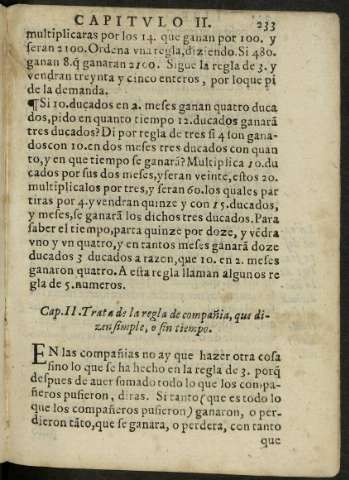 CAPITVLO II. 233
multiplicaras por los 14. que ganan por 100. y
seran 2100. Ordena vna regla, diziendo. Si 480.
ganan 8. q̃ ganaran 2100. Sigue la regla de 3. y
vendran treynta y cinco enteros, por lo que pi
de la demanda.
¶Si 10. ducados en 2. meses ganan quatro duca
dos, pido en quanto tiempo 12. ducados ganarã
tres ducados? Di por regla de tres si 4 son gana-
dos con 10. en dos meses tres ducados con quan
to, y en que tiempo se ganarã? Multiplica 10. du
cados por sus dos meses, y seran veinte, estos 20.
multiplicalos por tres, y seran 60. los quales par
tiras por 4. y vendran quinze y con 15. ducados,
y meses, se ganarã los dichos tres ducados. Para
saber el tiempo, parta quinze por doze, y vẽdra
vno y vn quatro, y en tantos meses ganarã doze
ducados 3 ducados a razon, que 10. en 2. meses
ganaron quatro. A esta regla llaman algunos re
gla de 5. numeros.
Cap. II. Trata de la regla de compañia, que di-
zen simple, o sin tiempo.
EN las compañias no ay que hazer otra cosa
sino lo que se ha hecho en la regla de 3. porq̃
despues de auer sumado todo lo que los compa-
ñeros pusieron, diras. Si tanto (que es todo lo
que los compañeros pusieron) ganaron, o per-
dieron tãto, que se ganara, o perdera, con tanto
que